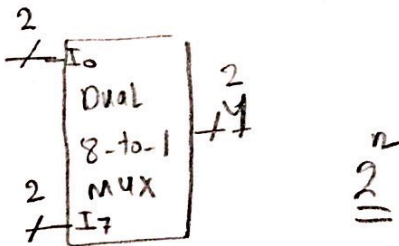 2
I₀
Dual
8-to-1
MUX
2
Y
2
I₇
2ⁿ